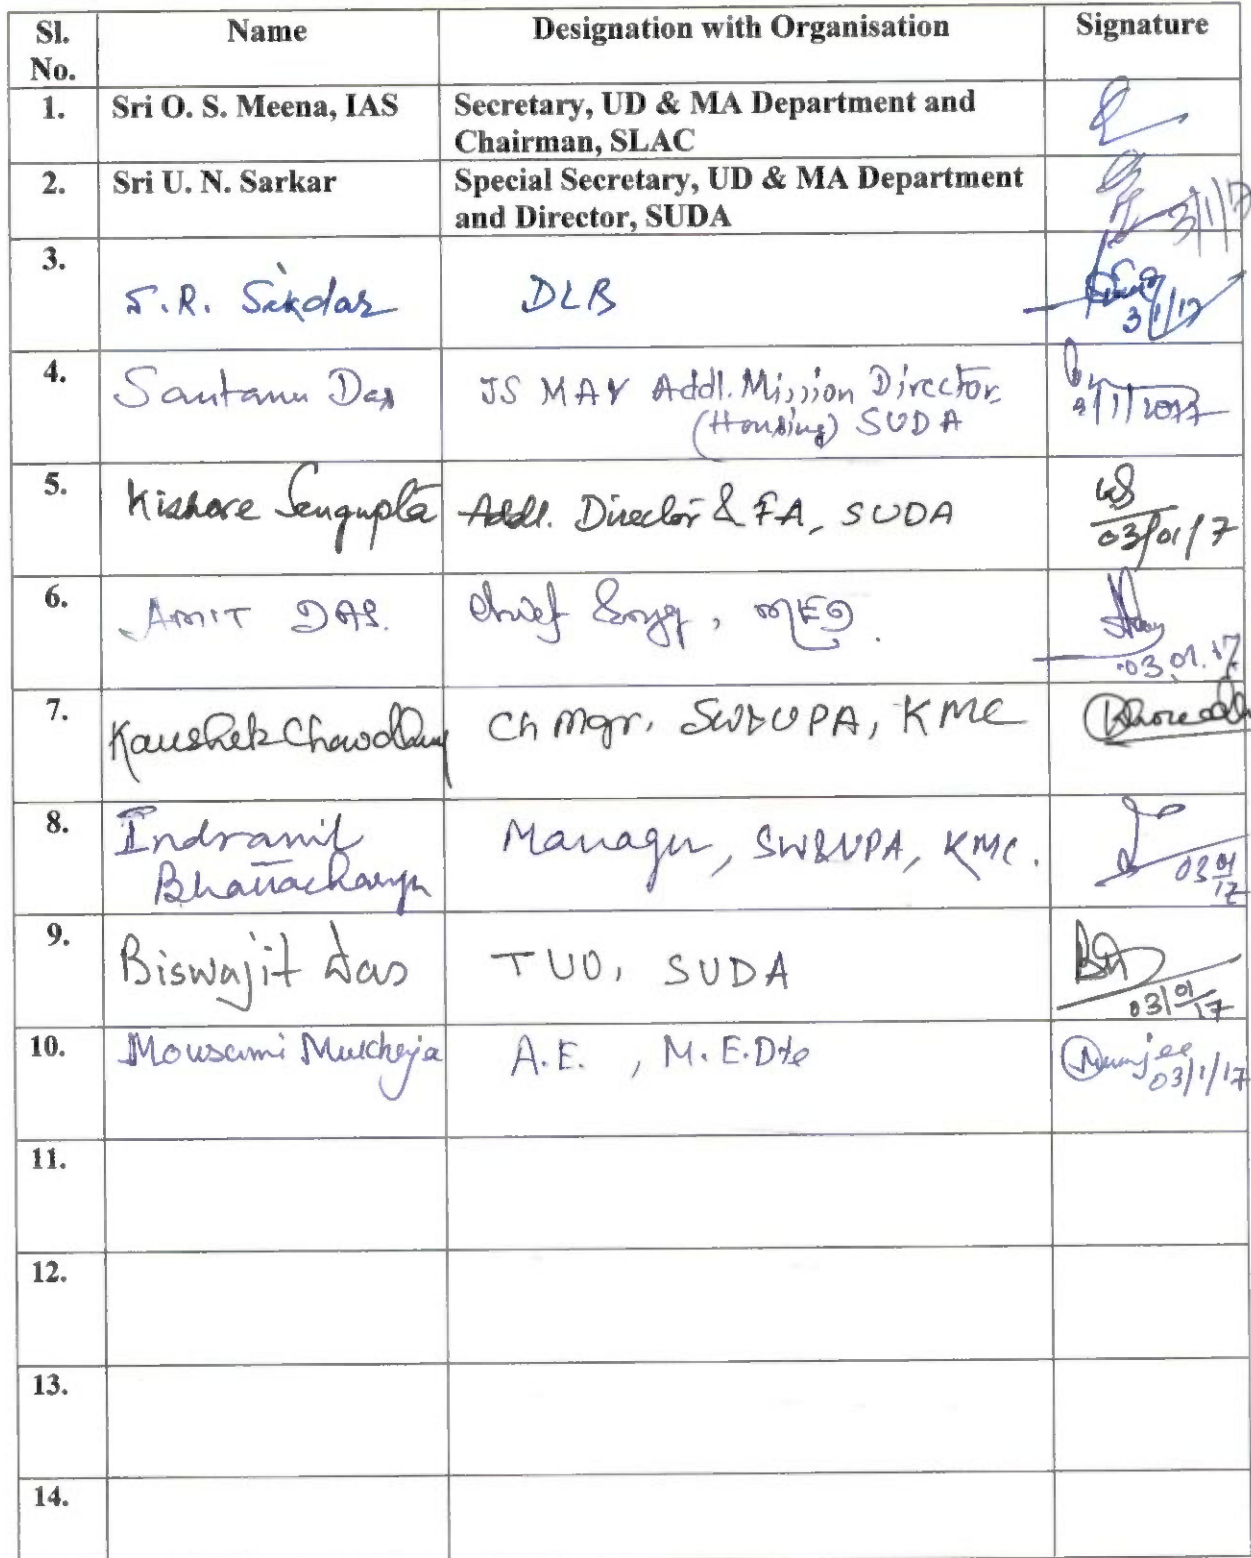 Sl. No. Name Designation with Organisation Signature
1. Sri O. S. Meena, IAS Secretary, UD & MA Department and
Chairman, SLAC
2. Sri U. N. Sarkar Special Secretary, UD & MA Department
and Director, SUDA
3/1/17
3.
S.R. Sikdar DLB
3/1/17
4. Santanu Das JS MA & Addl. Mission Director
(Housing) SUDA
3/1/2017
5. Kishore Sengupta Addl. Director & FA, SUDA
03/01/17
6. AMIT DAS. Chief Engg, MED.
03.01.17
7. Kaushik Chowdhury Ch Mgr. SW&UPA, KMC
8. Indranil
Bhattacharya Manager, SW&UPA, KMC.
03/01/17
9. Biswajit Das TUO, SUDA
03/01/17
10. Mousami Mukherjee A.E. , M.E.Dte
03/1/17
11.
12.
13.
14.